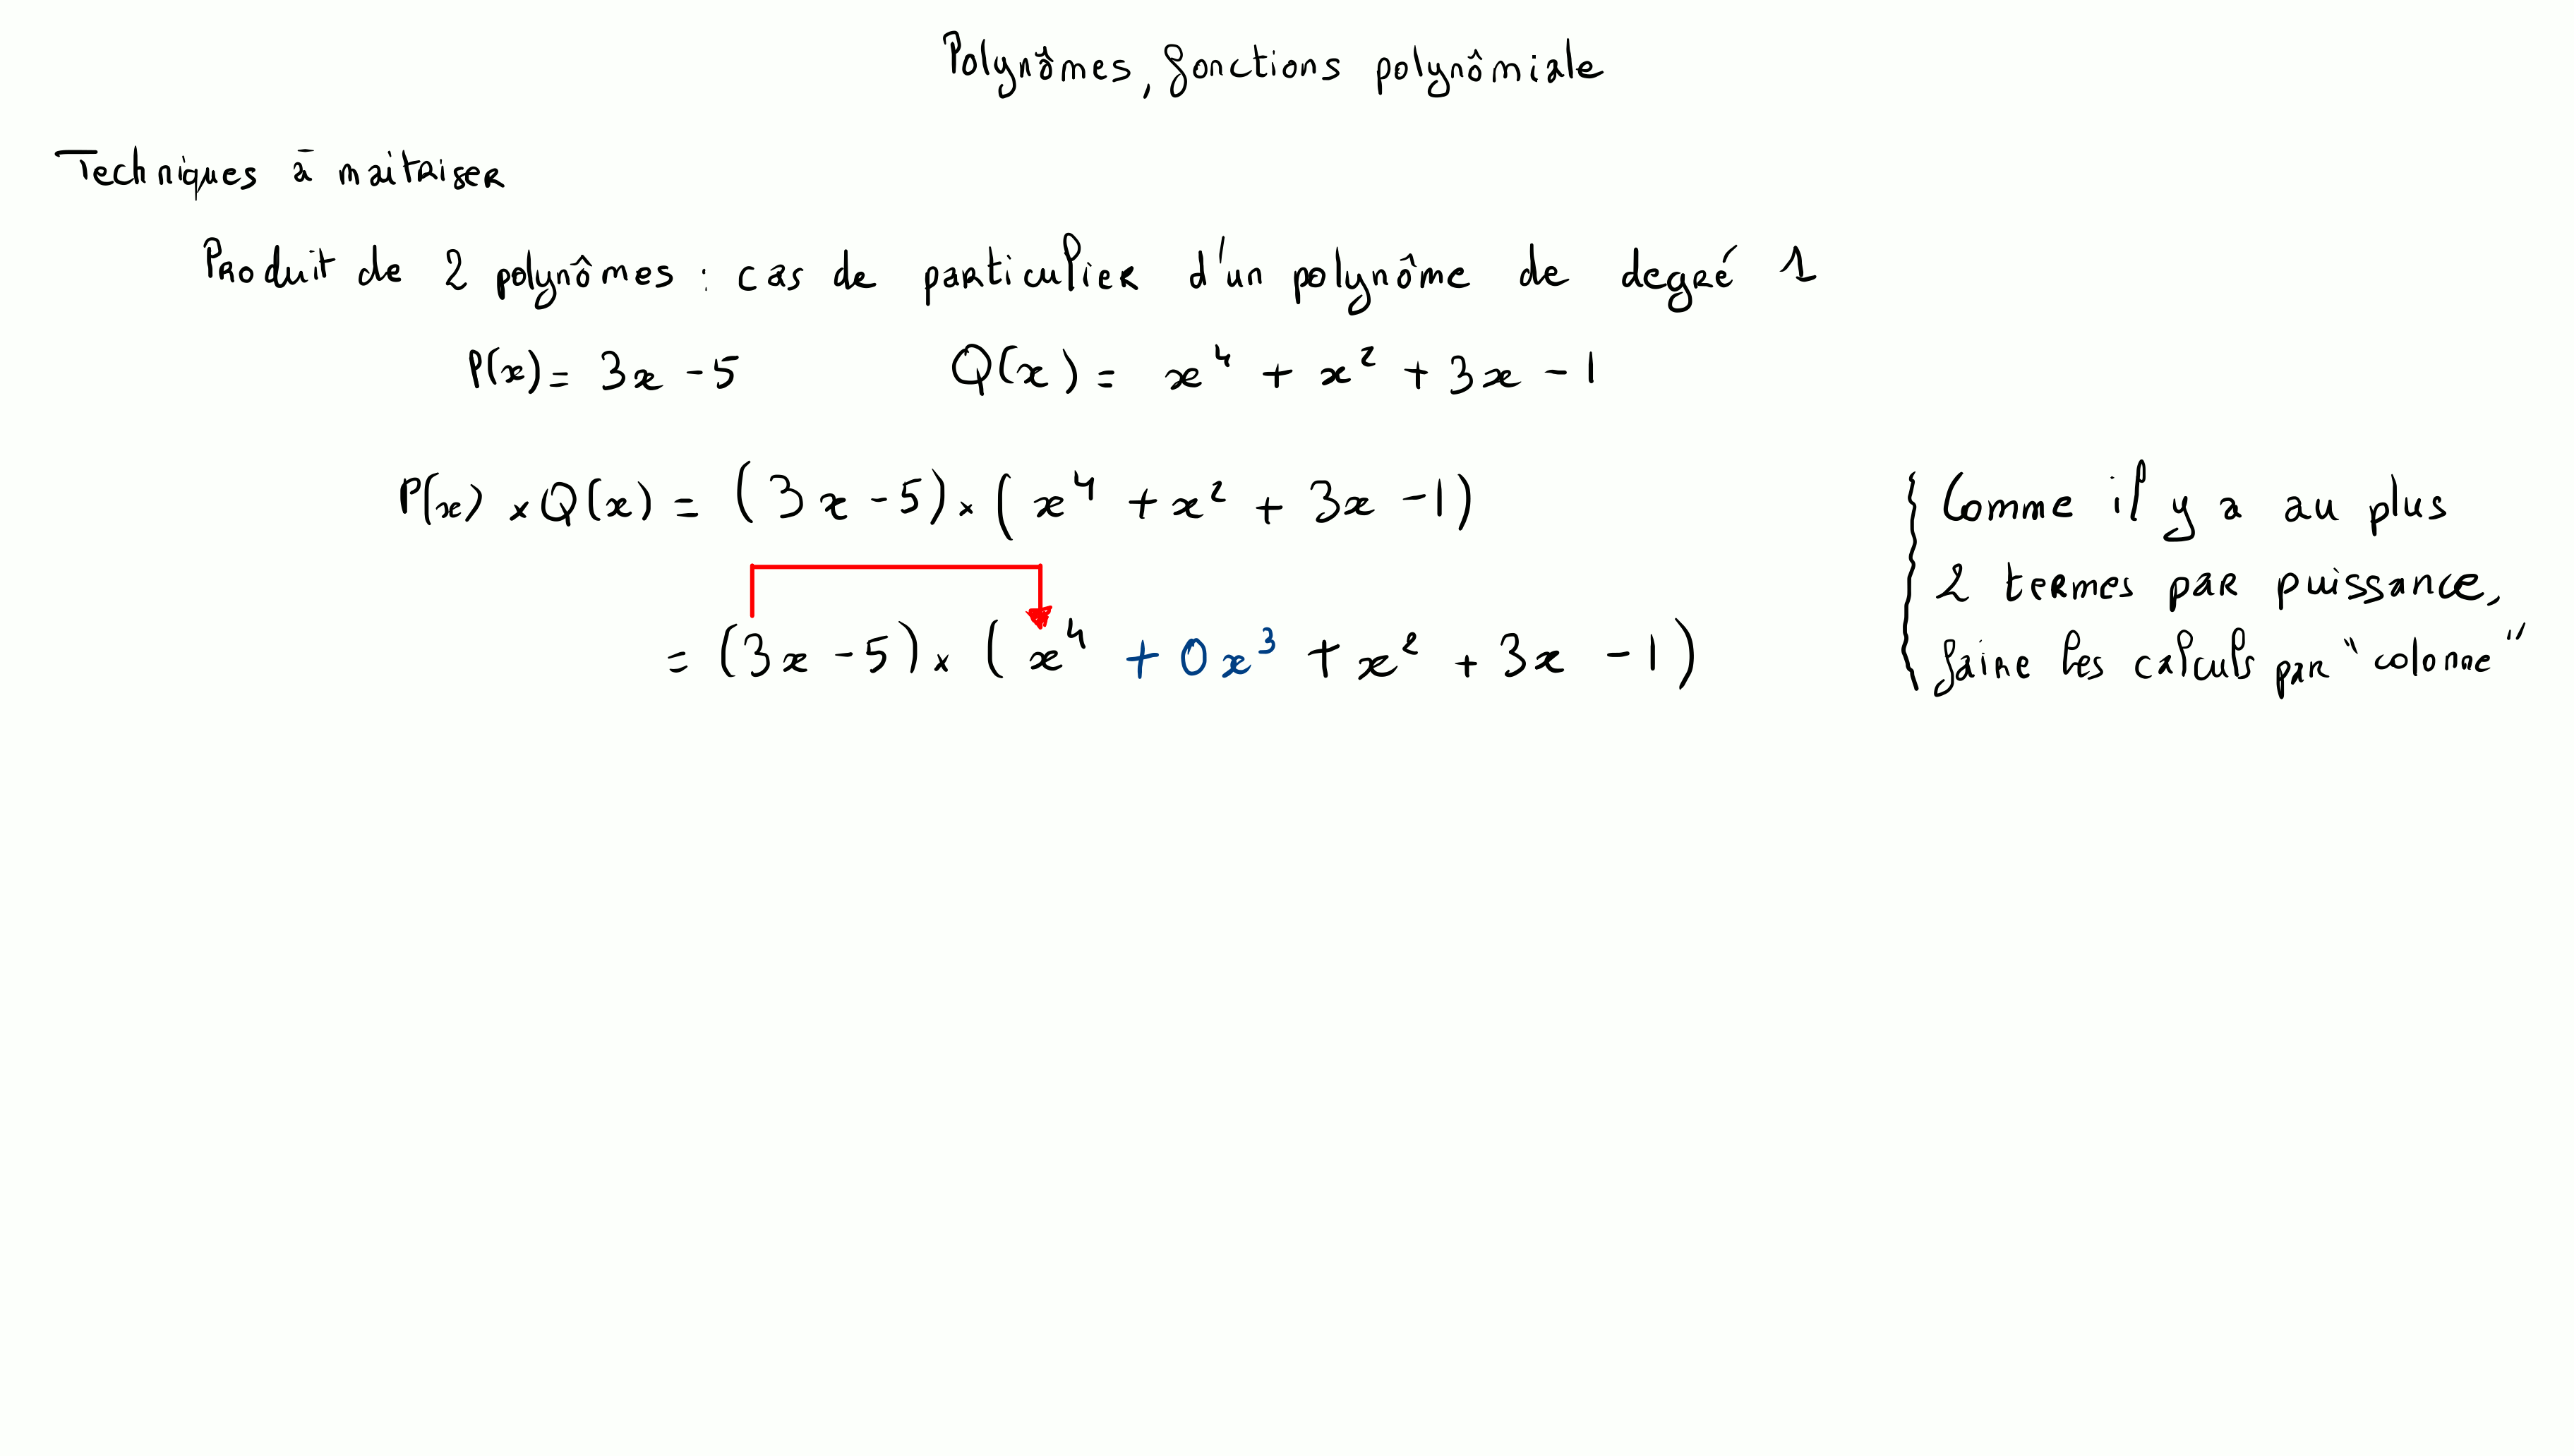 Polynômes, fonctions polynômiale
Techniques à maitriser
Produit de 2 polynômes : cas de particulier d'un polynôme de degré 1
P(x) = 3x - 5 Q(x) = x⁴ + x² + 3x - 1
P(x) × Q(x) = (3x - 5) × (x⁴ + x² + 3x - 1)
= (3x - 5) × (x⁴ + 0x³ + x² + 3x - 1)
Comme il y a au plus
2 termes par puissance,
faire les calculs par "colonne"